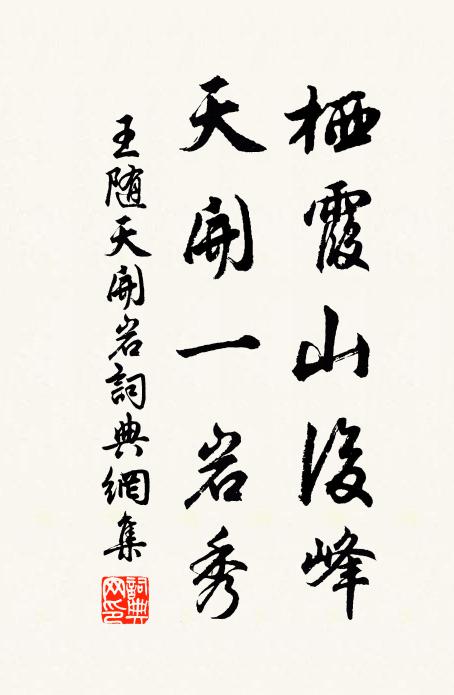 栖霞山後峰
天開一岩秀
王随天開岩詞典網集
詞典網印